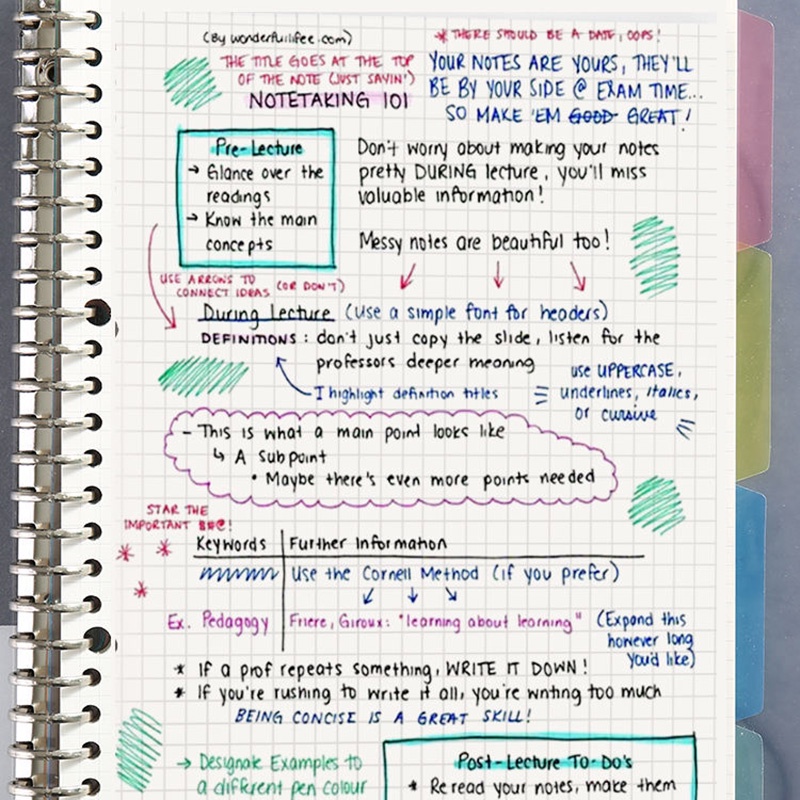 (By wonderfulifee.com)
* THERE SHOULD BE A DATE, OOPS!
THE TITLE GOES AT THE TOP
OF THE NOTE (JUST SAYIN')
NOTETAKING 101
YOUR NOTES ARE YOURS, THEY'LL
BE BY YOUR SIDE @ EXAM TIME...
SO MAKE 'EM GOOD GREAT!
Pre-Lecture
→ Glance over the
readings
→ Know the main
concepts
Don't worry about making your notes
pretty DURING lecture, you'll miss
valuable information!
Messy notes are beautiful too!
USE ARROWS TO
CONNECT IDEAS (OR DON'T)
During Lecture (Use a simple font for headers)
DEFINITIONS: don't just copy the slide, listen for the
professors deeper meaning
I highlight definition titles
use UPPERCASE,
underlines, italics,
or cursive
- This is what a main point looks like
↳ A Subpoint
• Maybe there's even more points needed
STAR THE
IMPORTANT $#@!
Keywords | Further Information
Use the Cornell Method (if you prefer)
Ex. Pedagogy | Friere, Giroux: "learning about learning"
(Expand this
however long
you'd like)
* If a prof repeats something, WRITE IT DOWN!
* If you're rushing to write it all, you're writing too much
BEING CONCISE IS A GREAT SKILL!
→ Designate Examples to
a different pen colour
Post-Lecture To-Do's
* Reread your notes, make them